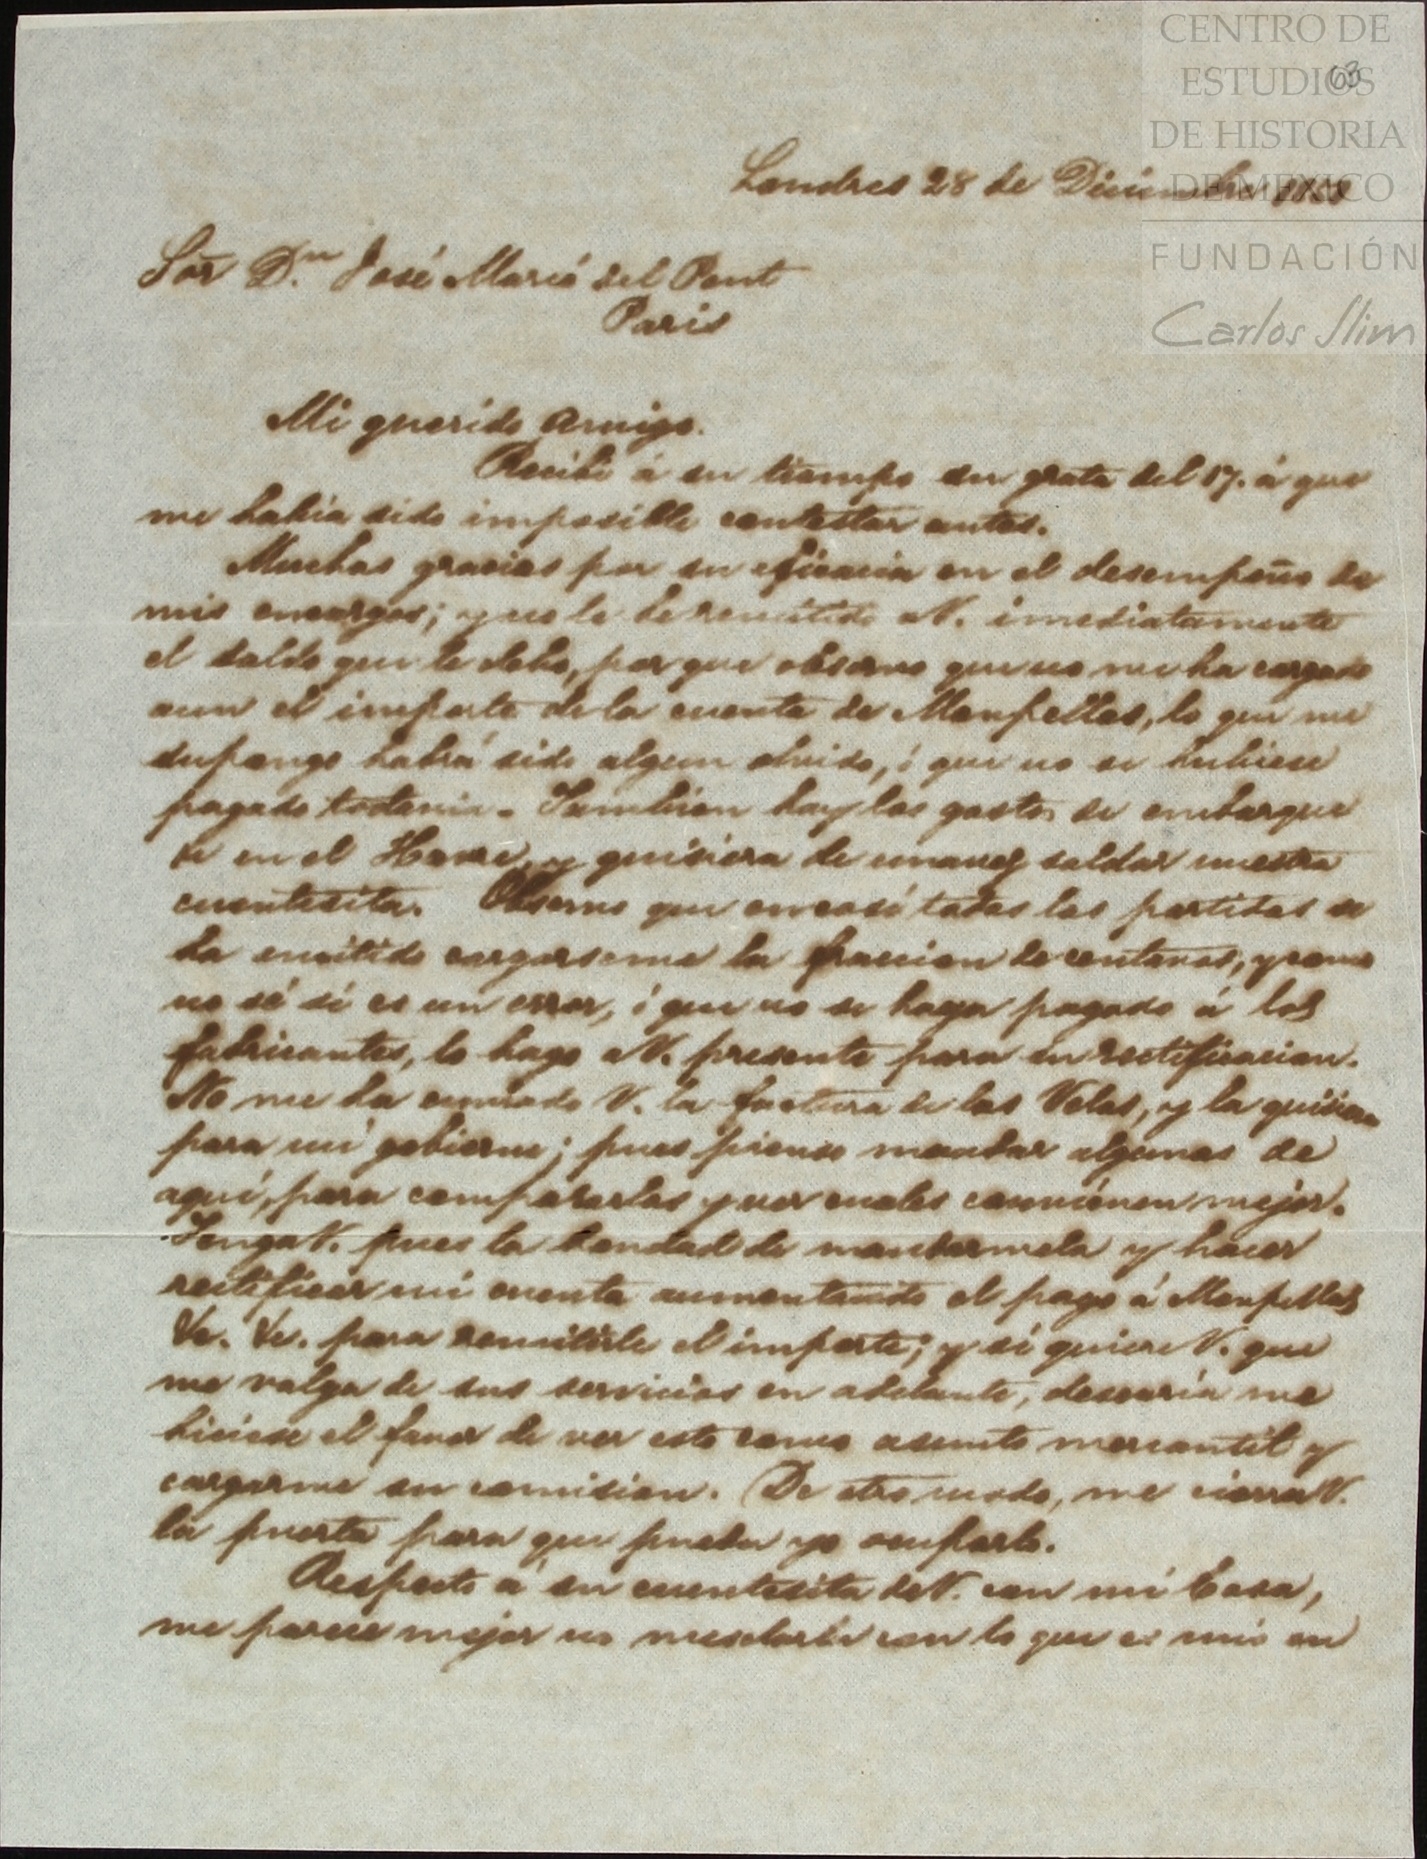 CENTRO DE
ESTUDIOS
DE HISTORIA
DE MEXICO
FUNDACIÓN
Carlos Slim
63
Londres 28 de Diciembre
Sor. Dn. José Maria del Pont
Paris
Mi querido Amigo.
Recibí á su tiempo su grata del 17. á que
me habia sido imposible contestar antes.
Muchas gracias por su eficacia en el desempeño de
mis encargos; y no le he remitido a V. imediatamente
el saldo que le debo, por que observo que no me ha cargado
aun el importe de la cuenta de Monpellas, lo que me
supongo habrá sido algun olvido, ó que no se hubiese
pagado todavia. Tambien hay los gastos de embarque
de en el Havre, y quisiera de una vez saldar nuestra
cuentesita. Observo que en casi todas las partidas se
ha omitido cargarseme la fraccion de centavos, y como
no sé si es un error, ó que no se haya pagado á los
fabricantes, lo hago a V. presente para su rectificacion.
No me ha enviado V. la factura de las Velas, y la quisiera
para mi gobierno; pues pienso mandar algunas de
aquí, para compararlas y ver cuales convienen mejor.
Tenga V. pues la bondad de mandarmela y hacer
rectificar mi cuenta aumentando el pago á Monpellas
&a. &a. para remitirle el importe; y si quiere V. que
me valga de sus servicios en adelante, desearia me
hiciese el favor de ver esto como asunto mercantil y
cargarme su comision. De otro modo, me cierra V.
la puerta para que pueda yo ocuparlo.
Respecto á su cuentesita de V. con mi Casa,
me parece mejor no mesclarla con lo que es mio en